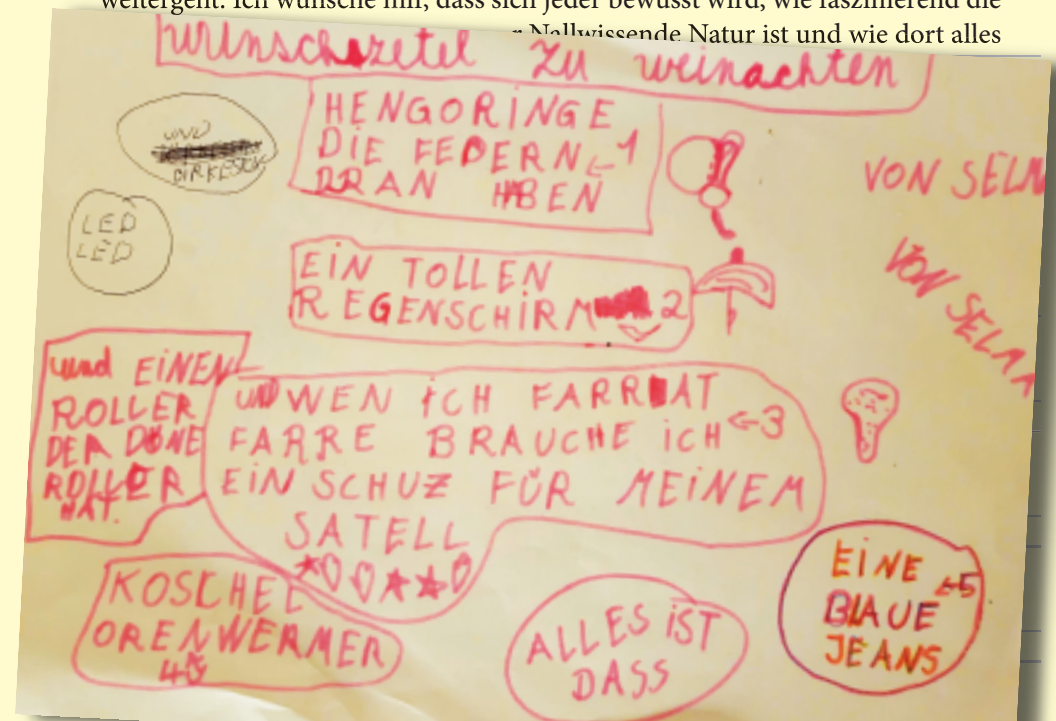 weitergeht. Ich wünsche mir, dass sich jeder bewusst wird, wie faszinierend die
Nallwissende Natur ist und wie dort alles
wunschzetel zu weinachten
HENGORINGE
DIE FEDERN ← 1
DRAN HABEN
UND
DIRKESCK
LED
LED
VON SELM
VON SELMA
EIN TOLLEN
REGENSCHIRM 2
und EINEN
ROLLER
DER DÜNE
ROLLER
HAT.
UND WEN ICH FARRAT
FARRE BRAUCHE ICH ← 3
EIN SCHUZ FÜR MEINEM
SATELL
KOSCHEL
ORENWERMER
4
ALLES IST
DASS
EINE ← 5
BLAUE
JEANS